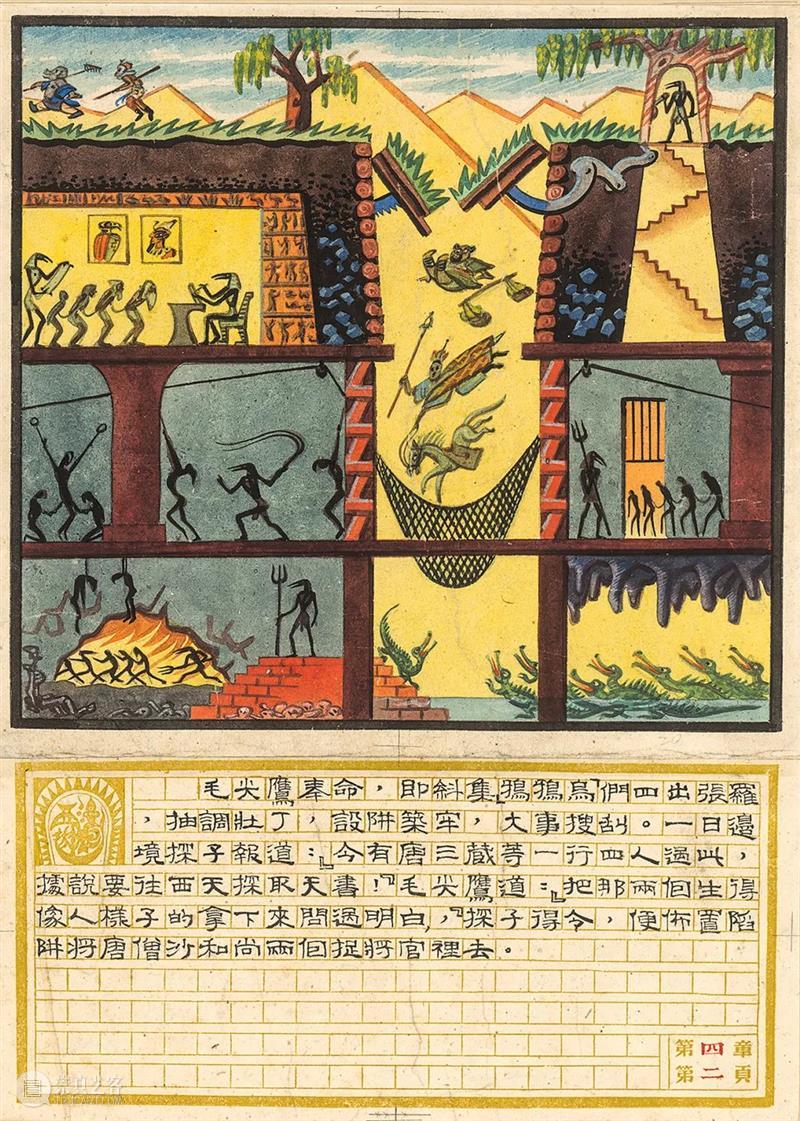 毛尖鷹奉命，即糾集『鵶鵶烏』們四出張羅
，抽調壯丁，設阱築牢，大事搜刮。一日邊
境探子報道：『今有唐三藏等一行四人過此，
據說要往西天探取天書！』毛尖鷹道：『把那兩個生得
像人樣子的拿下來問過明白，』探子得令，便佈置陷
阱將唐僧沙和尚兩個捉將官裡去。
第四章
第二頁